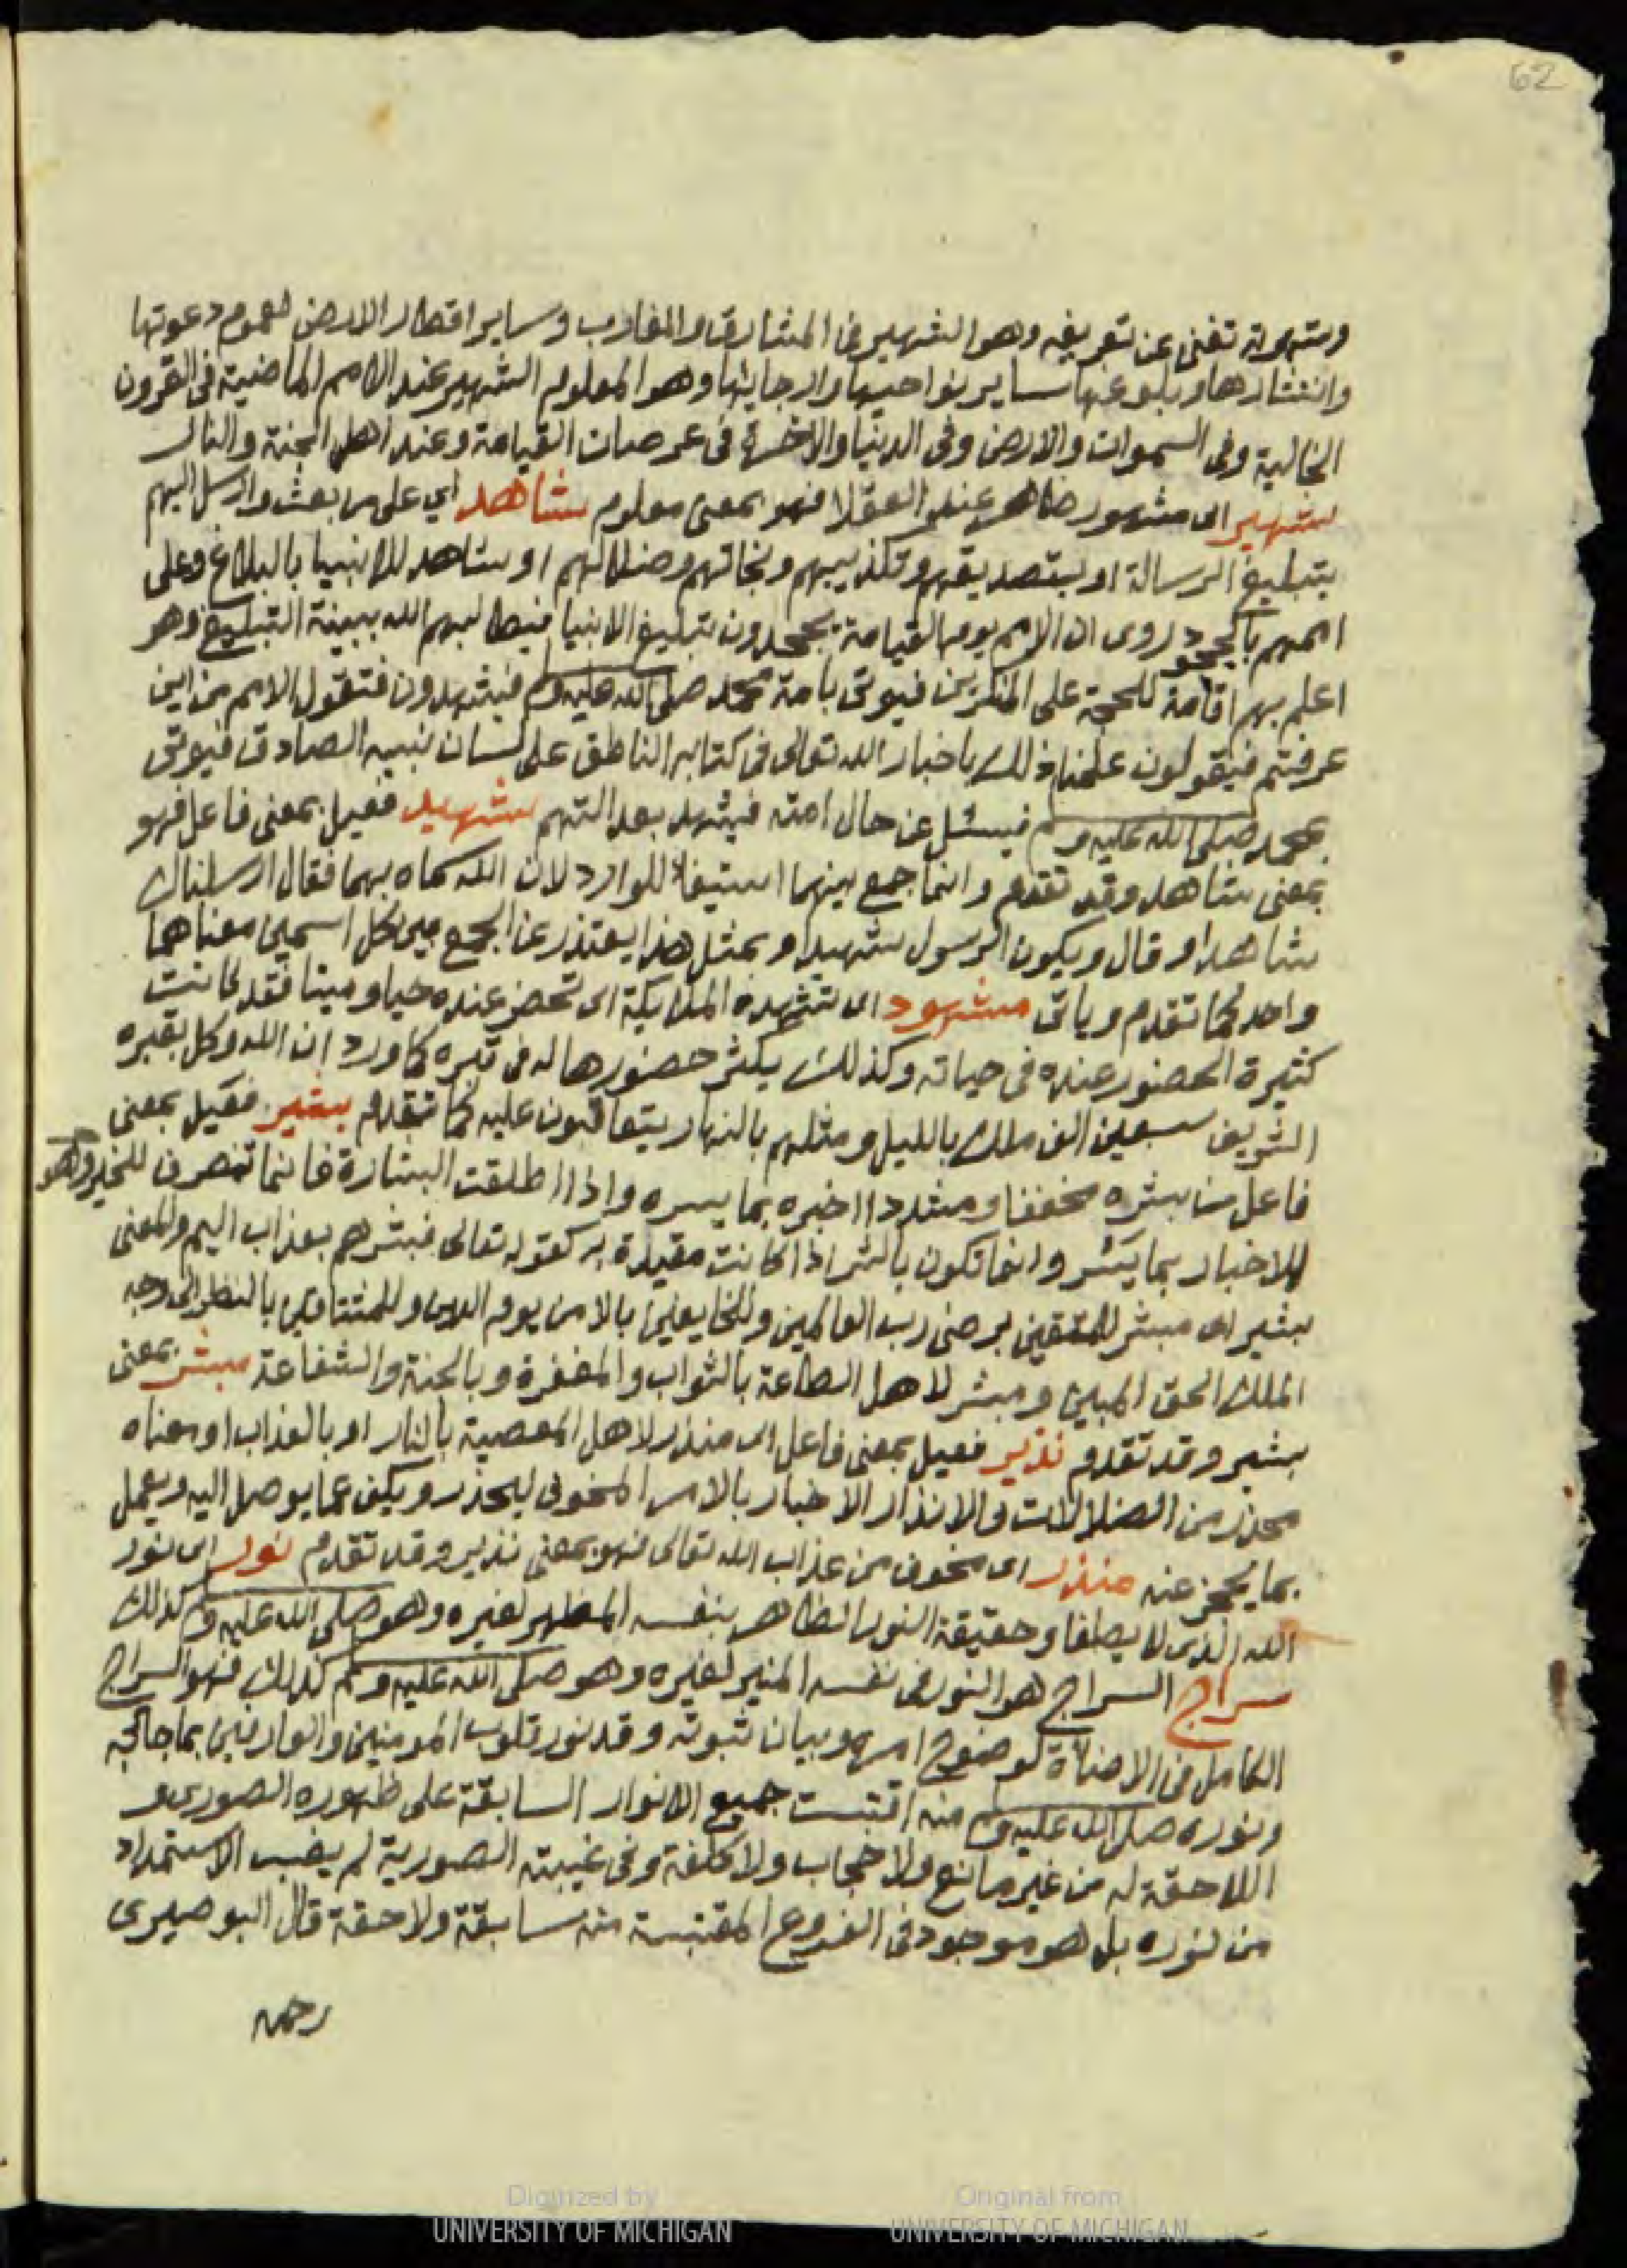 62
وشهرته تغنى عن تعريفه وهو الشهير فى المشارق والمغارب وساير اقطار الارض لعموم دعوتها
وانتشارها وبلوغها ساير نواحيها وارجايها وهو المعلوم الشهير عند الامم الماضية فى القرون
الخالية وفى السموات والارض وفى الدنيا والاخرة فى عرصات القيامة وعند اهل الجنة والنار
شهير اى مشهور ظاهر عند العقلا فهو بمعنى معلوم شاهد اي على من بعث وارسل اليهم
بتبليغ الرسالة او بتصديقهم وتكذيبهم ونجاتهم وضلالهم او شاهد للانبيا بالبلاغ وعلى
اممهم بالجحود روى ان الامم يوم القيامة يجحدون تبليغ الانبيا فيطالبهم الله ببينة التبليغ وهو
اعلم بهم اقامة للحجة على المنكرين فيوتى بامة محمد صلى الله عليه وم فيشهدون فتقول الامم من اين
عرفتم فيقولون علمنا ذلك باخبار الله تعالى فى كتابه الناطق على لسان نبيه الصادق فيوتى
بمحمد صلى الله عليه وم فيسئل عن حال امته فيشهد بعدالتهم شهيد فعيل بمعنى فاعل فهو
بمعنى شاهد وقد تقدم وانما جمع بينهما استيفا للوارد لان الله سماه بهما فقال ارسلناك
شاهدا وقال ويكون الرسول شهيدا وبمثل هذا يعتذر عن الجمع بين كل اسمين معناهما
واحد كما تقدم وياتى مشهود اى تشهده الملايكة اى تحضر عنده حيا وميتا فقد كانت
كثيرة الحضور عنده فى حياته وكذلك يكثر حضورها له فى قبره كما ورد ان الله وكل بقبره
الشريف سبعين الف ملك بالليل ومثلهم بالنهار يتعاقبون عليه كما تقدم بشير فعيل بمعنى
فاعل من بشره مخففا ومشددا اخبره بما يسره واذا اطلقت البشارة فانما تنصرف للخير وهو
للاخبار بما يسر وانما تكون بالشر اذا كانت مقيدة به كقوله تعالى فبشرهم بعذاب اليم والمعنى
بشير اى مبشر للمتقين برضى رب العالمين وللخايفين بالامن يوم الدين وللمشتاقين بالنظر الى وجه
الملك الحق المبين ومبشر لاهل الطاعة بالثواب والمغفرة وبالجنة والشفاعة مبشر بمعنى
بشير وقد تقدم نذير فعيل بمعنى فاعل اى منذر لاهل المعصية بالنار او بالعذاب او معناه
محذر من الضلالات والانذار الاخبار بالامر المخوف ليحذر ويكف عما يوصل اليه ويعمل
بما يحجز عنه منذر اى مخوف من عذاب الله تعالى فهو بمعنى نذير وقد تقدم نور اى نور
الله الذى لا يطفا وحقيقة النور الظاهر بنفسه المظهر لغيره وهو صلى الله عليه وم كذلك
سراج السراج هو النور فى نفسه المنير لغيره وهو صلى الله عليه وم كذلك فهو السراج
الكامل فى الاضاة لوضوح امره وبيان نبوته وقد نور قلوب المومنين والعارفين بما جا به
ونوره صلى الله عليه وم منه اقتبست جميع الانوار السابقة على ظهوره الصورى و
اللاحقة له من غير مانع ولا حجاب ولا كلفة وفى غيبته الصورية لم يغب الاستمداد
من نوره بل هو موجود فى الفروع المقتبسة منه سابقة ولاحقة قال البوصيرى
رحمه
Digitized by
UNIVERSITY OF MICHIGAN
Original from
UNIVERSITY OF MICHIGAN